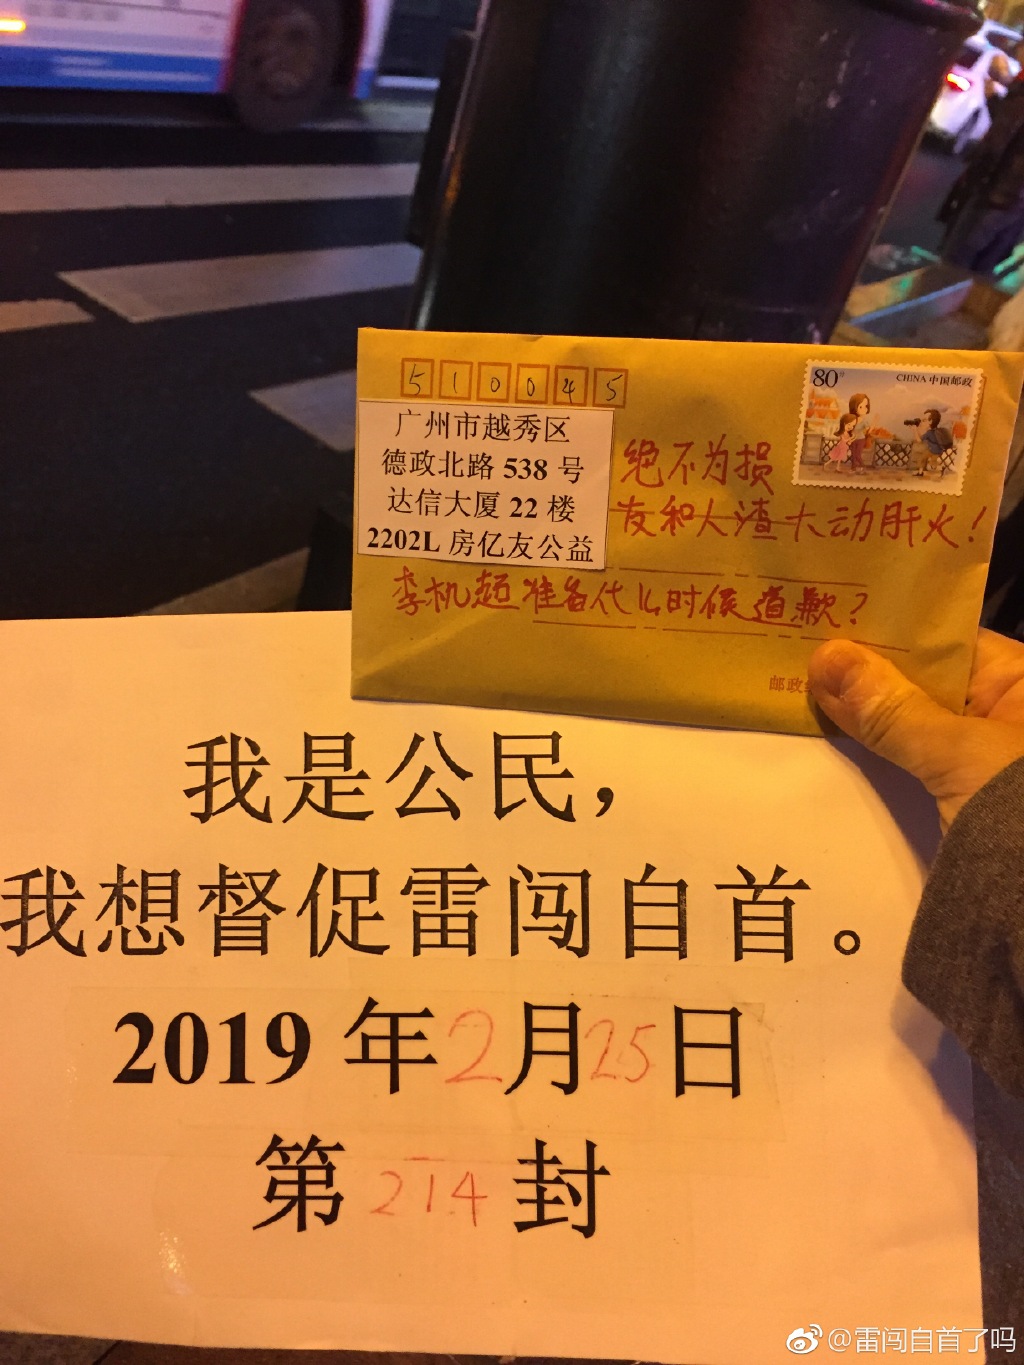 510045
80分
CHINA 中国邮政
广州市越秀区
德政北路 538 号
达信大厦 22 楼
2202L 房亿友公益
绝不为损
友和人渣大动肝火！
李机超准备什么时候道歉？
邮政
我是公民，
我想督促雷闯自首。
2019 年 2 月 25 日
第 214 封
@雷闯自首了吗